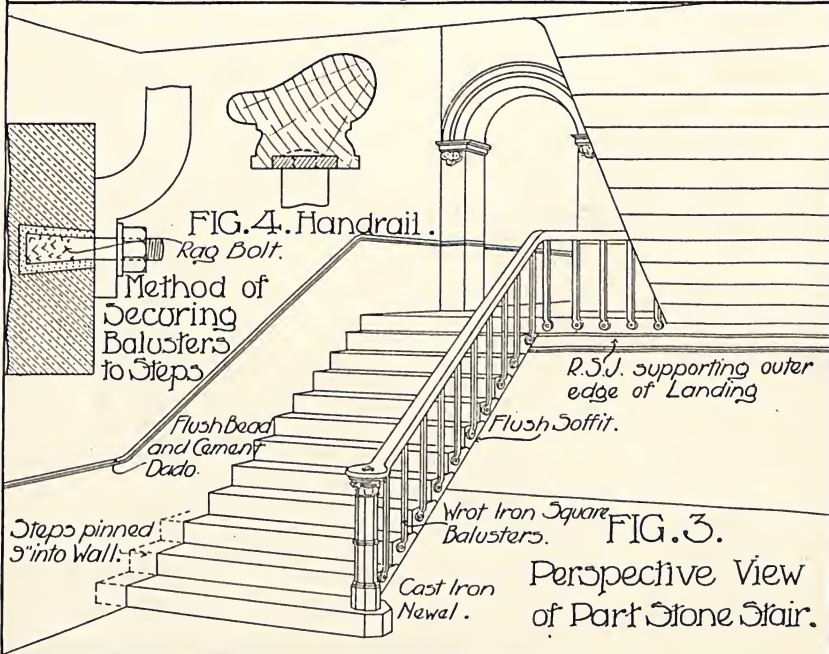 FIG.4. Handrail.
Rag Bolt.
Method of
Securing
Balusters
to Steps
R.S.J. supporting outer
edge of Landing
Flush Bead
and Cement
Dado.
Flush Soffit.
Steps pinned
9" into Wall.
Wrot Iron Square
Balusters.
Cast Iron
Newel.
FIG.3.
Perspective View
of Part Stone Stair.